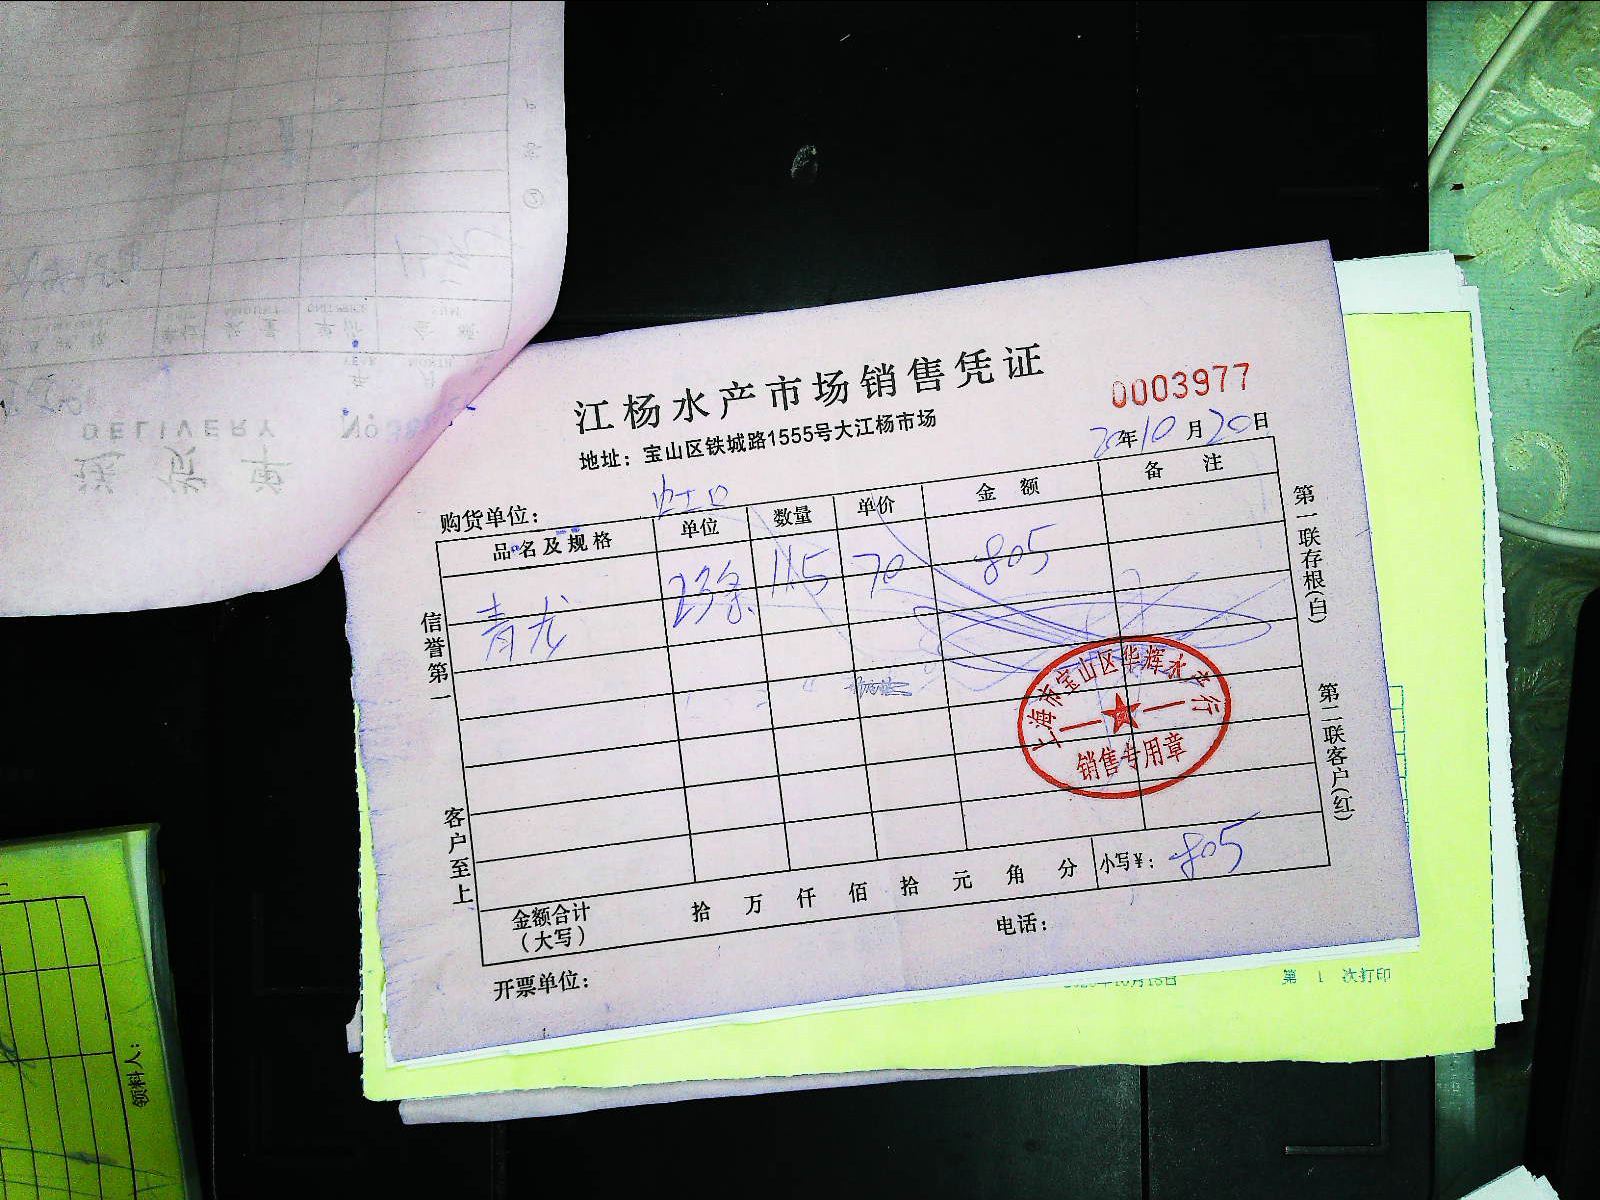 江杨水产市场销售凭证
0003977
地址：宝山区铁城路1555号大江杨市场
20年10月20日
购货单位： 虹口
品名及规格 单位 数量 单价 金额 备注
青龙 23条 11.5 70 805
信誉第一
客户至上
第一联存根(白)
第二联客户(红)
上海市宝山区华辉水产行
销售专用章
金额合计(大写) 拾 万 仟 佰 拾 元 角 分 小写¥： 805
开票单位：
电话：
第 1 次打印
送货单
DELIVERY
No
领料人：